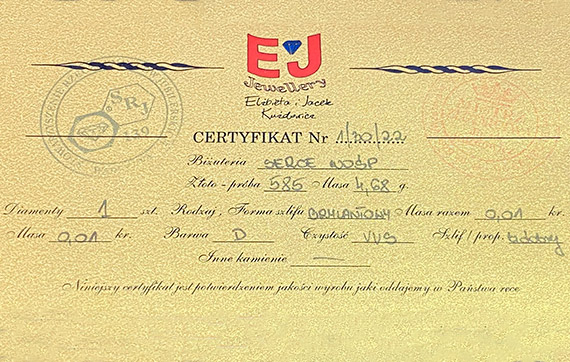 EJ
Jewellery
Elżbieta i Jacek
CERTYFIKAT Nr 1/30/22
Biżuteria SERCE WOŚP
Złoto - próba 585 Masa 4,68 g.
Diamenty 1 szt. Rodzaj , Forma szlifu BRYLANTOWY Masa razem 0,01 kr.
Masa 0,01 kr. Barwa D Czystość VVS Szlif / prop. b.dobry
Inne kamienie —
Niniejszy certyfikat jest potwierdzeniem jakości wyrobu jaki oddajemy w Państwa ręce